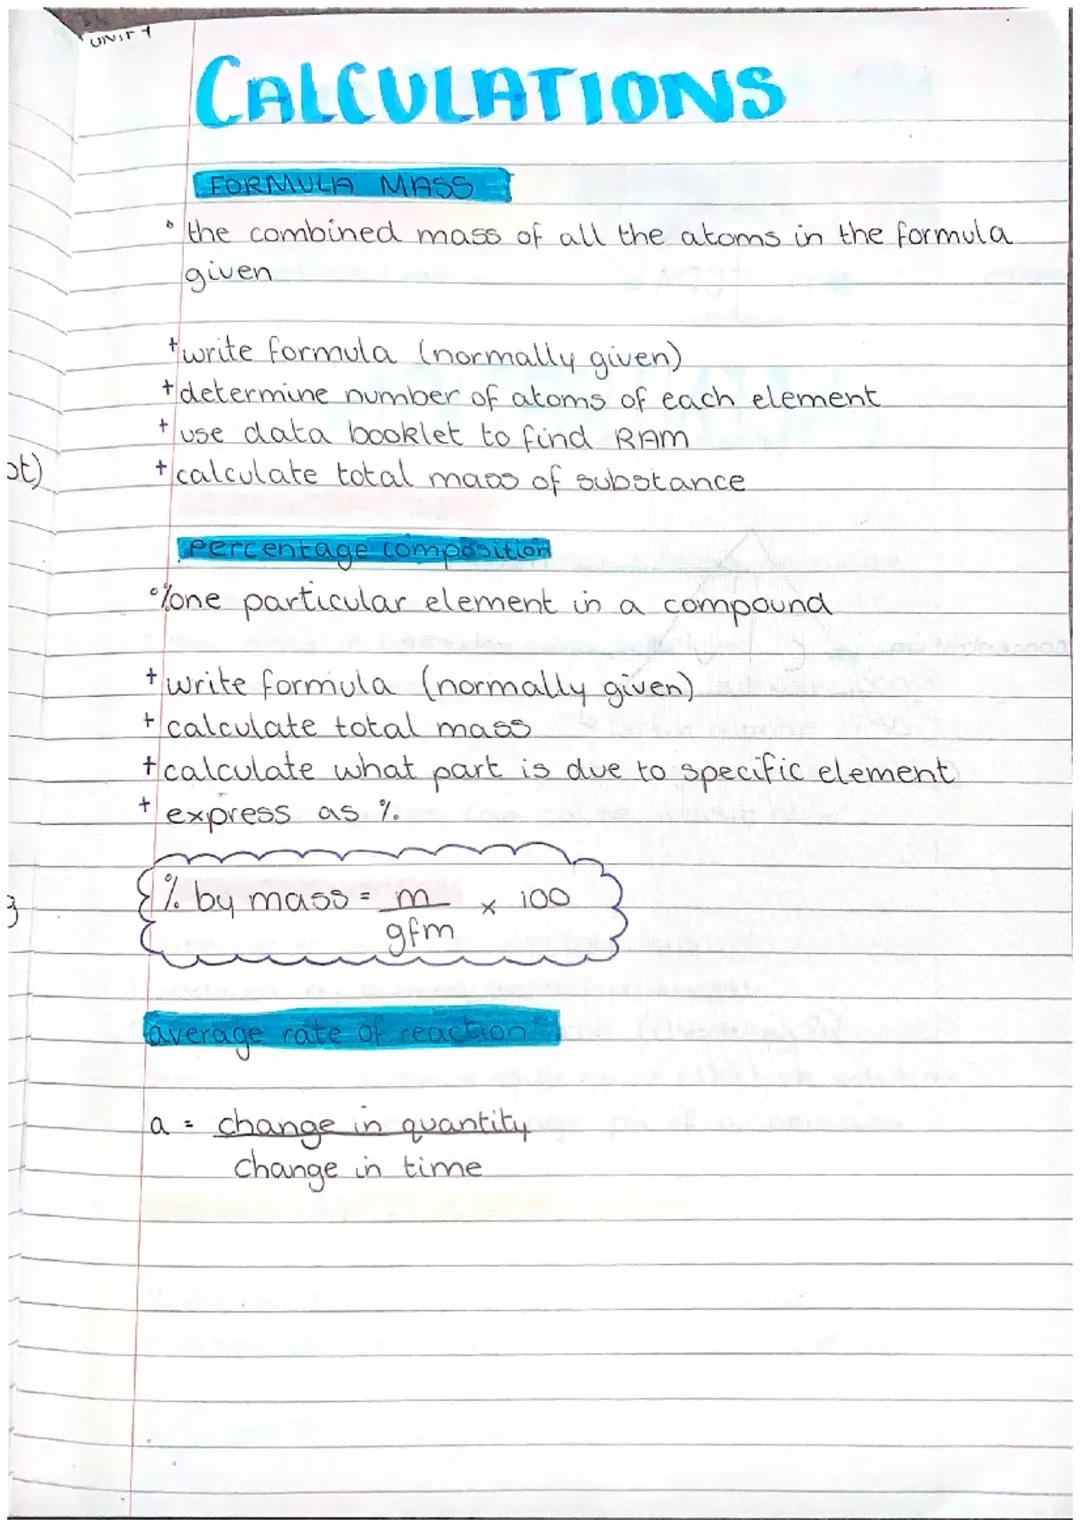 UNIT 1
CALCULATIONS
FORMULA MASS
• the combined mass of all the atoms in the formula
given
+ write formula (normally given)
+ determine number of atoms of each element
+ use data booklet to find RAM
+ calculate total mass of substance
percentage composition
• % one particular element in a compound
+ write formula (normally given)
+ calculate total mass
+ calculate what part is due to specific element
+ express as %.
% by mass = m × 100
gfm
average rate of reaction
a = change in quantity
change in time